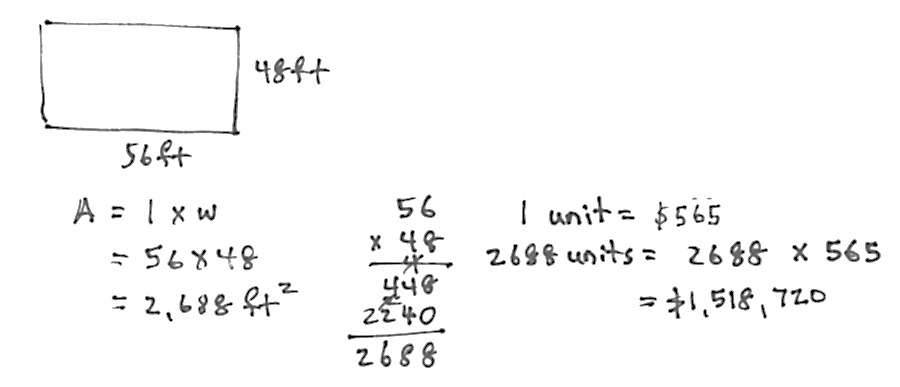 48ft
56ft
A = l x w
= 56 x 48
= 2,688 ft²
56
x 48
448
2240
2688
1 unit = $565
2688 units = 2688 x 565
= $1,518,720